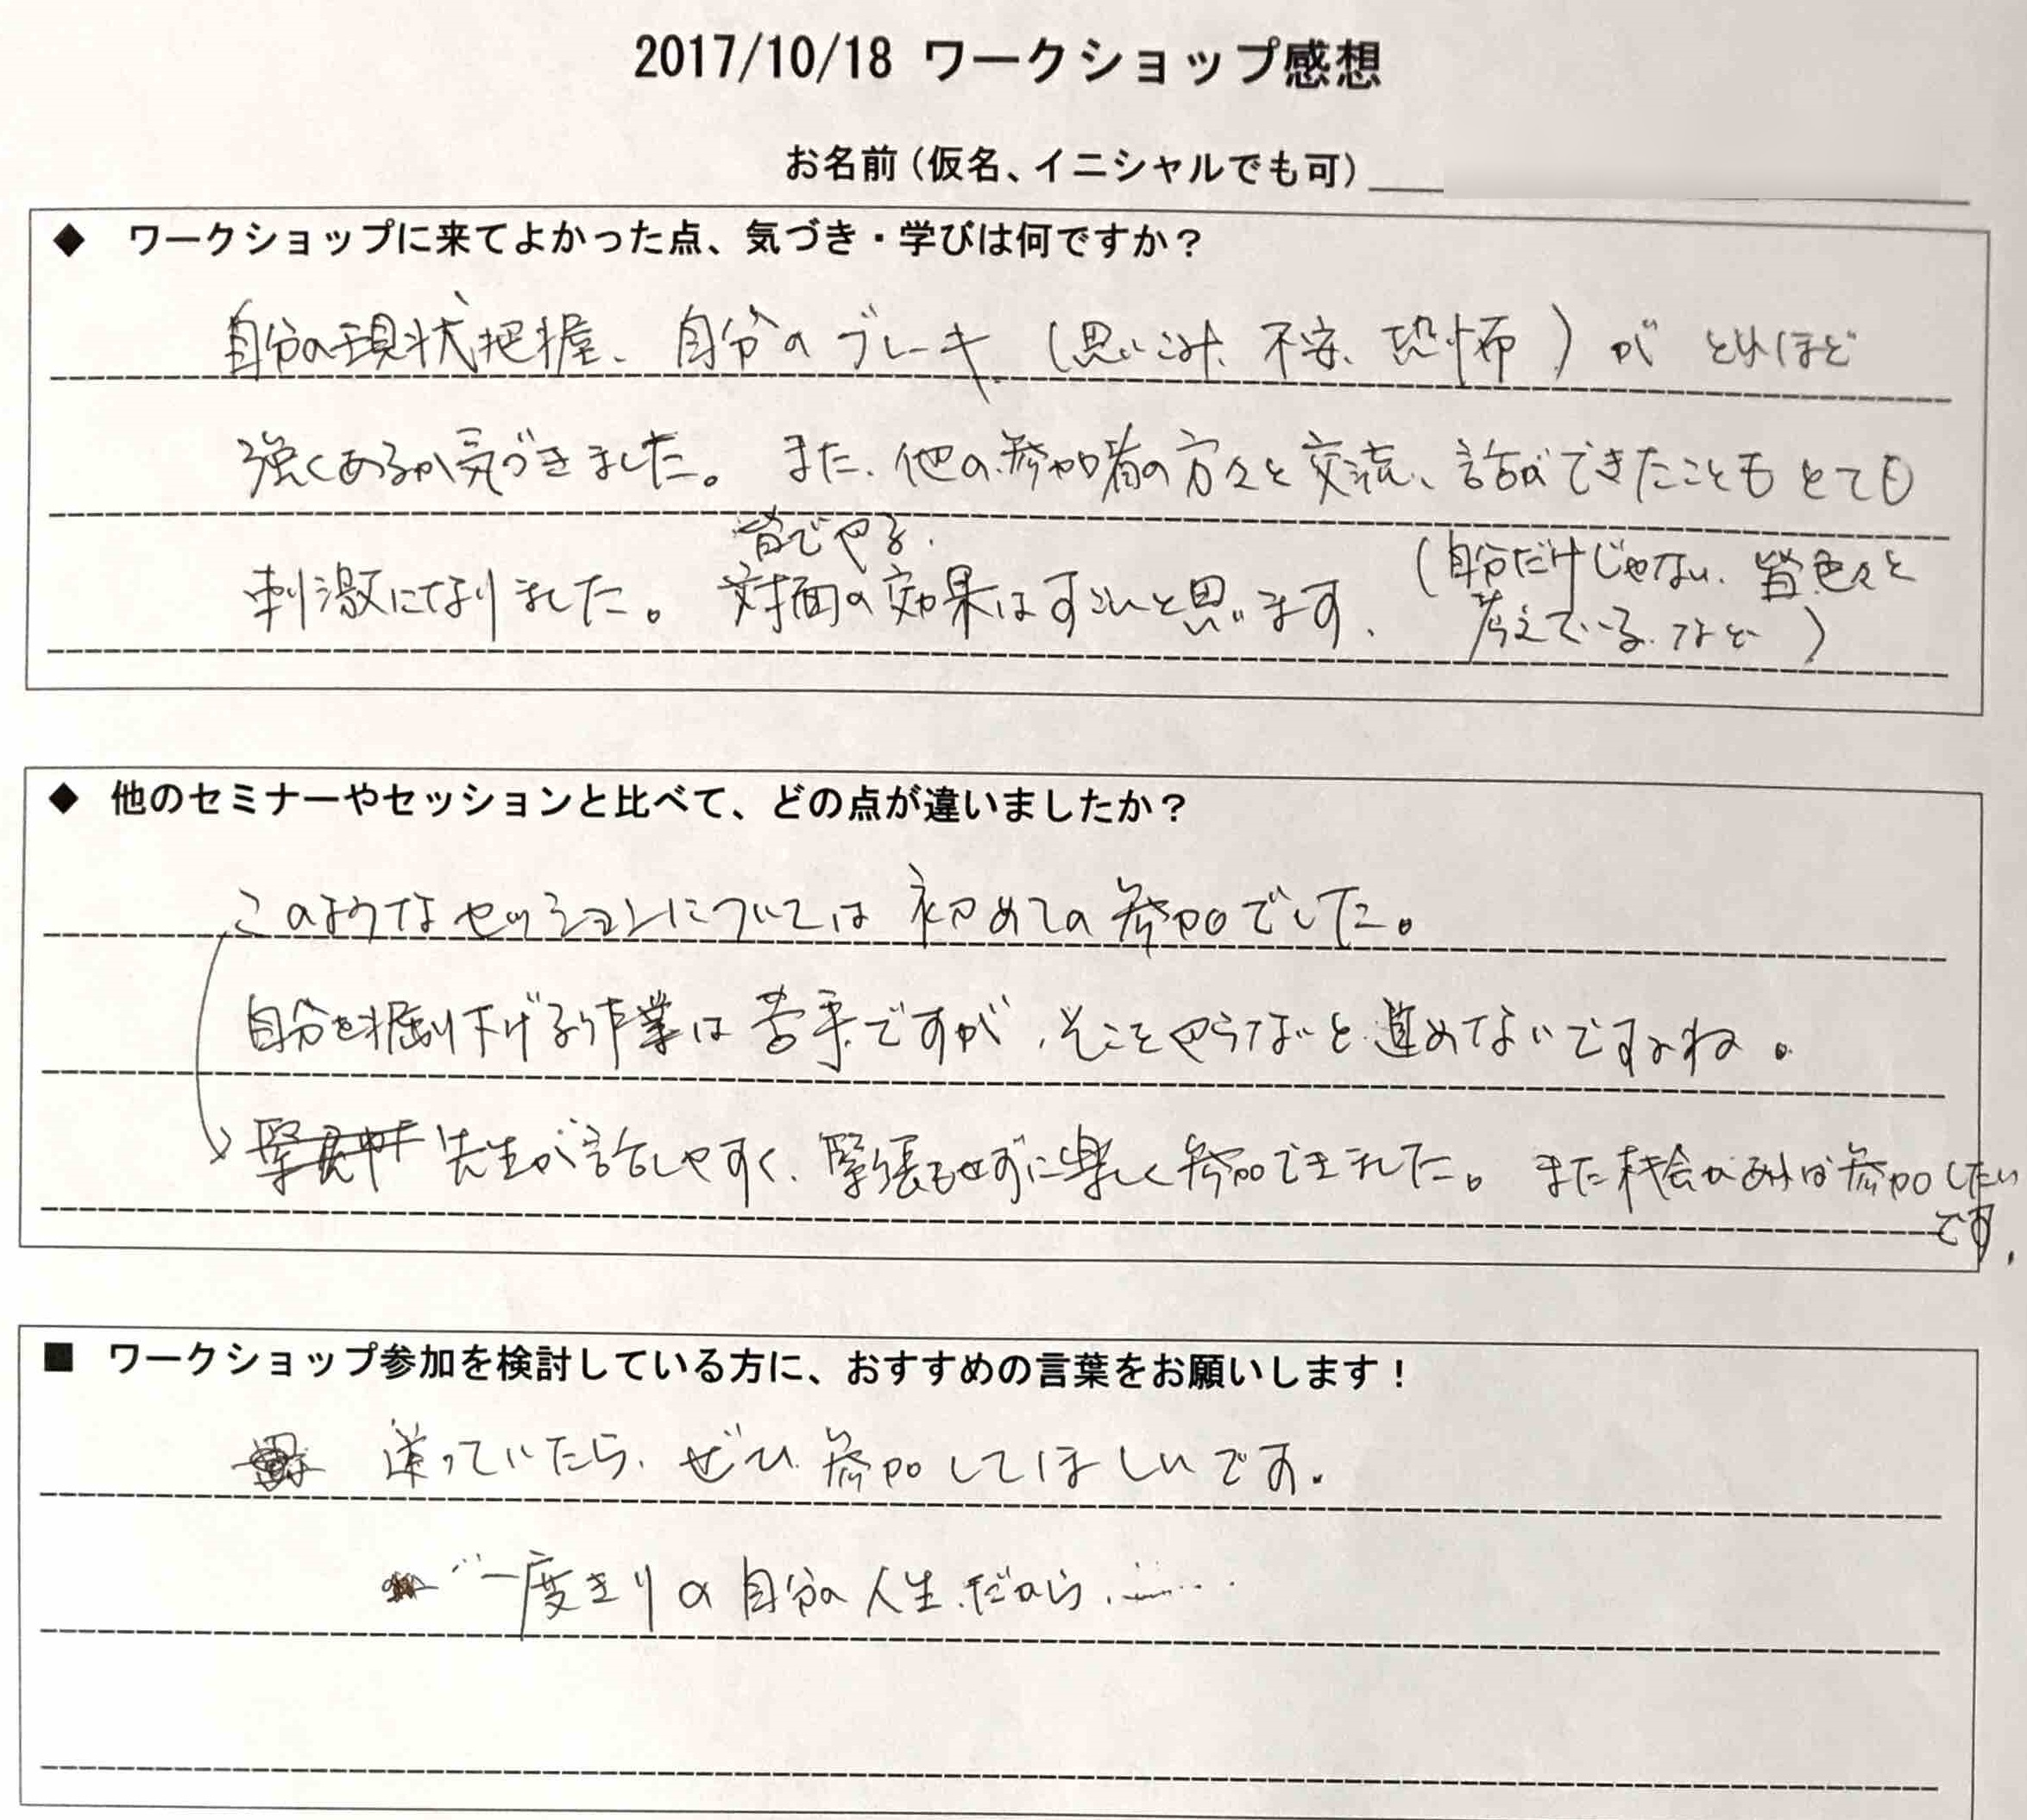 2017/10/18 ワークショップ感想
お名前(仮名、イニシャルでも可)
◆ ワークショップに来てよかった点、気づき・学びは何ですか?
自分の現状把握、自分のブレーキ(思いこみ、不安、恐怖)が どれほど
強くあるか気づきました。また、他の参加者の方々と交流、話ができたことも とても
皆でやる、
刺激になりました。対面の効果はすごいと思います、
(自分だけじゃない、皆色々と
考えている、など)
◆ 他のセミナーやセッションと比べて、どの点が違いましたか?
このようなセッションについては 初めての参加でした。
自分を掘り下げる作業は苦手ですが、そこをやらないと進めないですよね。
先生が話しやすく、緊張もせずに楽しく参加できました。また機会があれば参加したい
です、
■ ワークショップ参加を検討している方に、おすすめの言葉をお願いします!
迷っていたら、ぜひ参加してほしいです。
一度きりの自分の人生だから、……